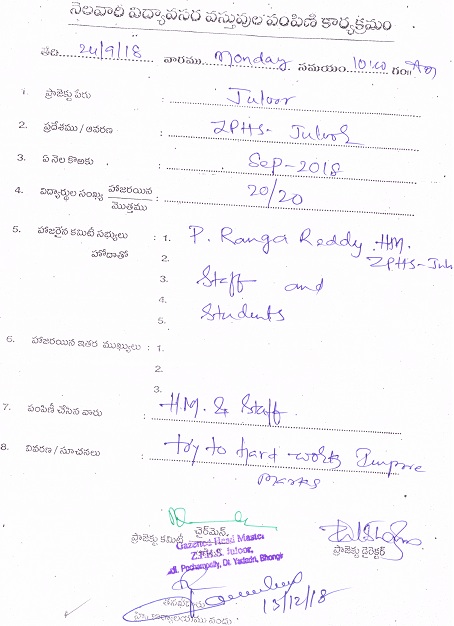 నెలవారి విద్యావసర వస్తువుల పంపిణి కార్యక్రమం
తేది. 24/9/18 వారము Monday సమయం. 10:00 గం॥ Am
1. ప్రాజెక్టు పేరు : Juloor
2. ప్రదేశము / ఆవరణ : ZPHS- Juloor
3. ఏ నెల కొఱకు : Sep-2018
4. విద్యార్థుల సంఖ్య హాజరయిన / మొత్తము : 20/20
5. హాజరైన కమిటీ సభ్యులు : 1. P. Ranga Reddy .HM.
హోదాతో 2. ZPHS-Jul
3. Staff and
4.
5. Students
6. హాజరయిన ఇతర ముఖ్యులు : 1.
2.
3.
7. పంపిణీ చేసిన వారు : H.M. & Staff
8. వివరణ / సూచనలు : try to hard work Improve
marks
ప్రాజెక్టు కమిటీ చైర్‌మెన్,
Gazetted Head Master
Z.P.H.S. Juloor,
Pochampally, Dt. Yadadri, Bhongir
ప్రాజెక్టు డైరెక్టర్
13/12/18